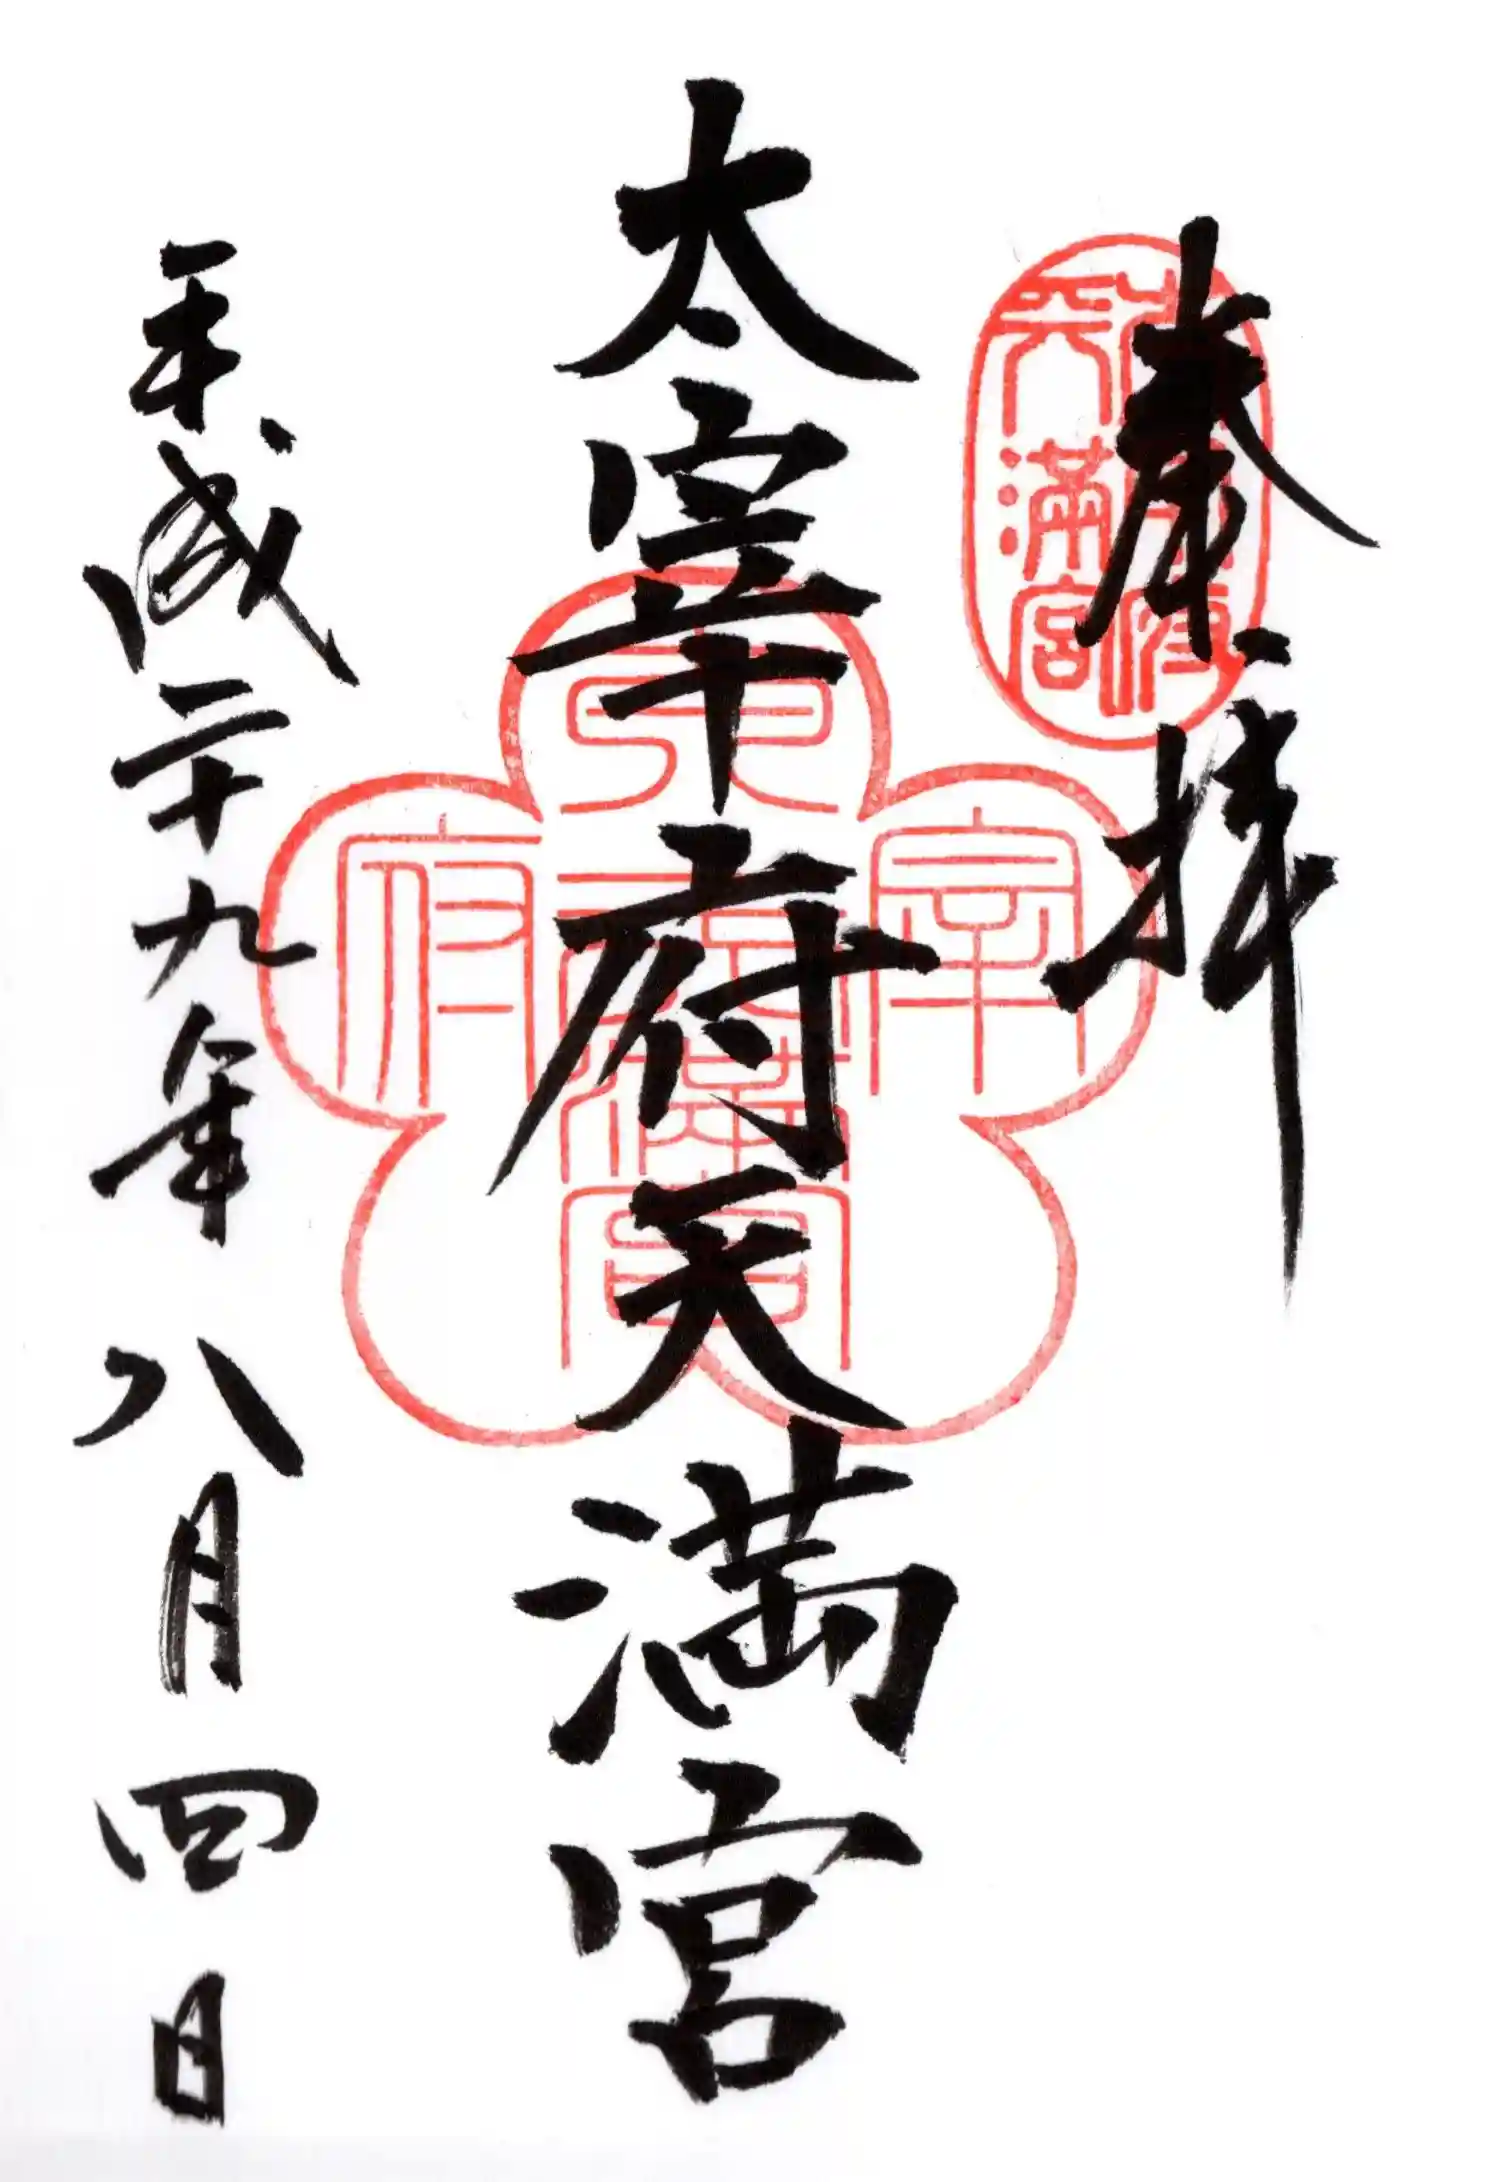 奉拝
太宰府天満宮
平成二十九年八月四日
天満宮
宰
府
満宮